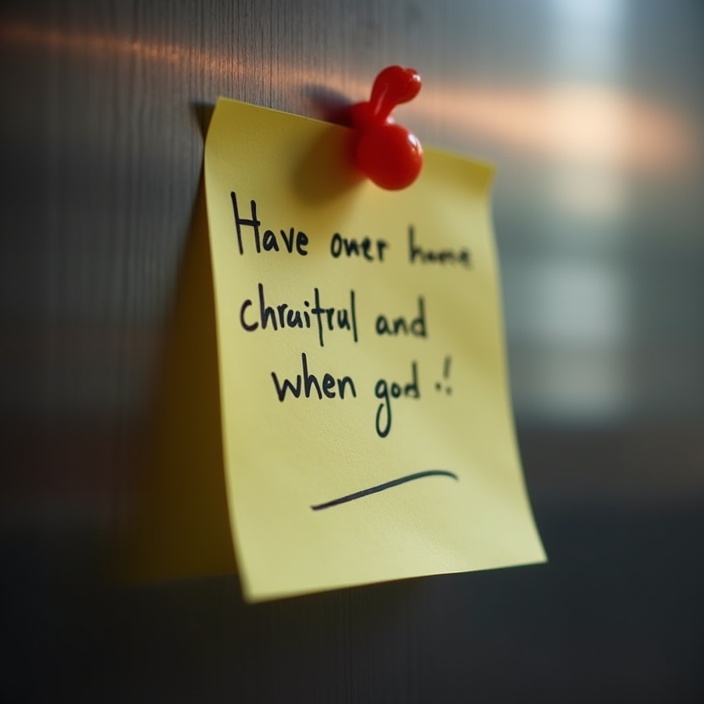 Have oner home
chraitrul and
when god .!